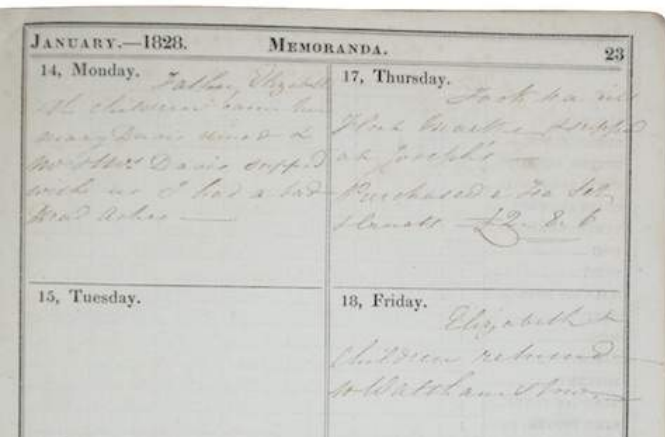 JANUARY.—1828. MEMORANDA. 23
14, Monday. Father, Elizabeth
children came
Mary Davis dined &
Mr & Mrs Davis supped
with us I had a bad
Head Ache —
15, Tuesday.
17, Thursday.
Took tea
& supped
at Joseph's —
Purchased a Tea Set
£2. 8. 6
18, Friday.
Elizabeth &
Children returned
to Walthamstow